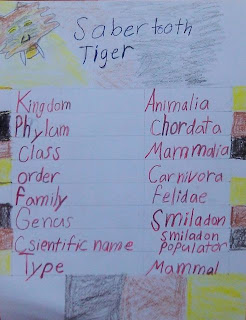 Saber tooth
Tiger
Kingdom Animalia
Phylum Chordata
Class Mammalia
order Carnivora
family Felidae
Genus Smiladon
Csientific name Smiladon populator
Type Mammal